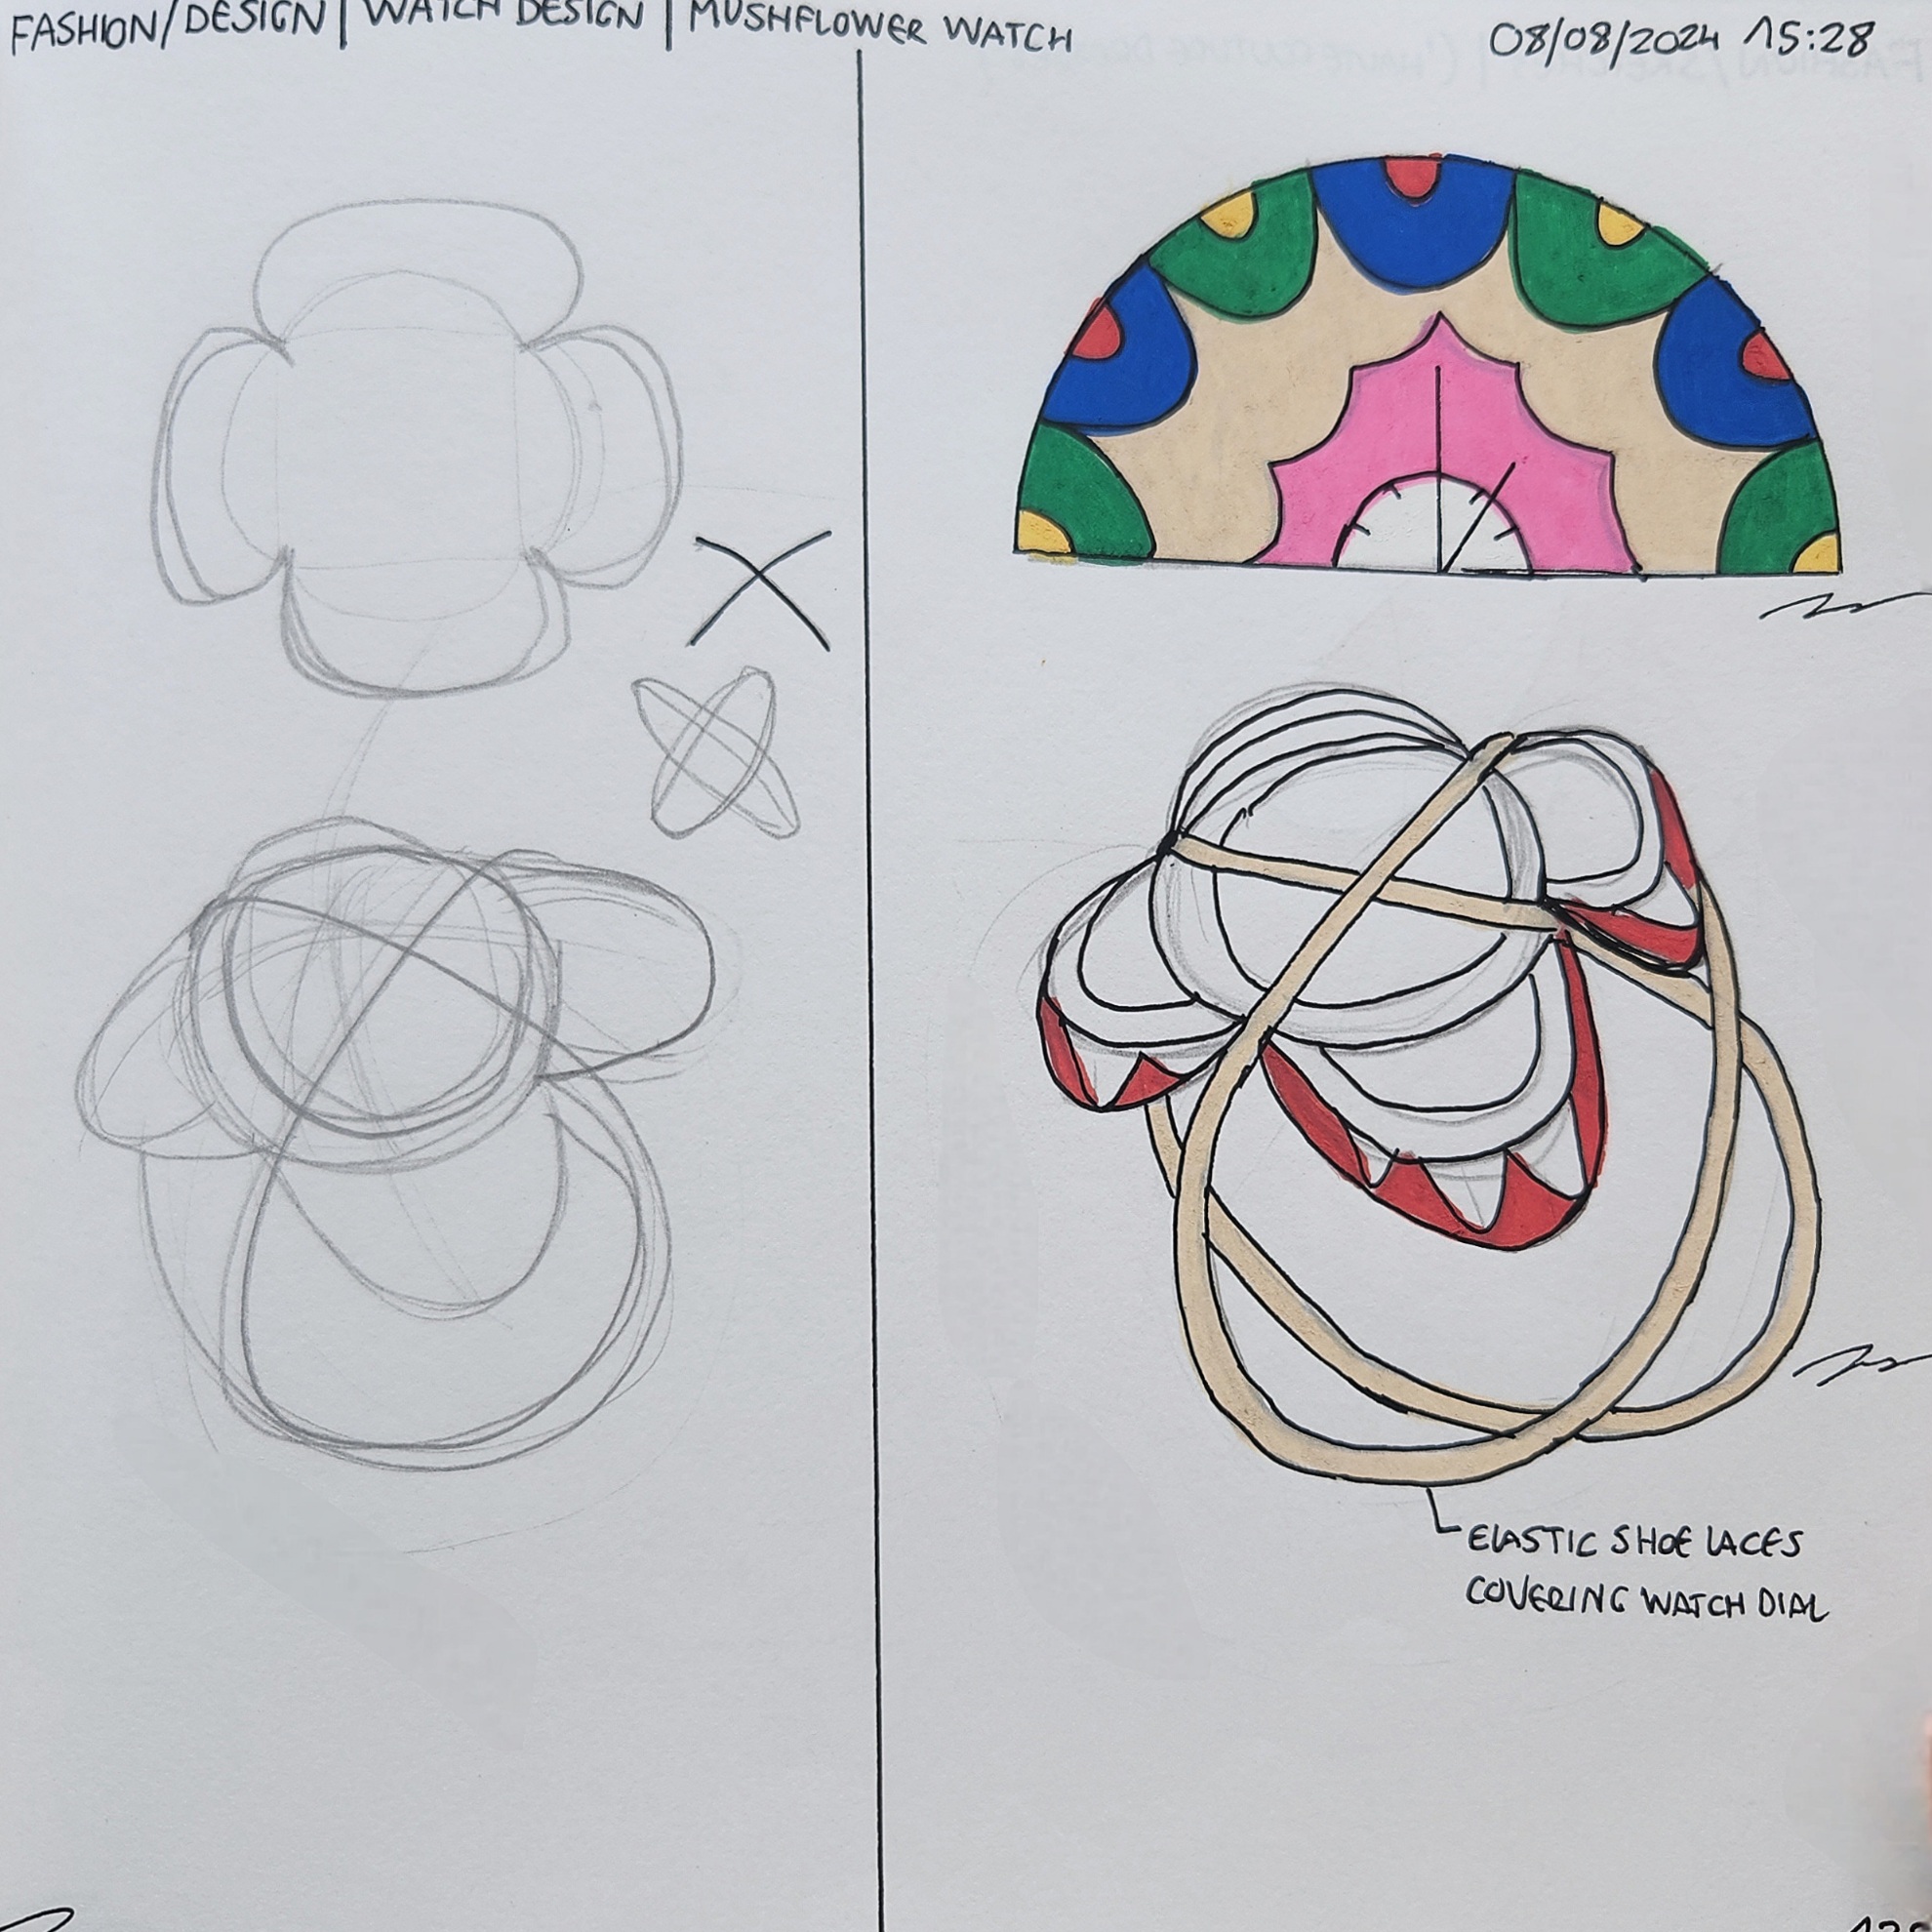 FASHION/DESIGN | WATCH DESIGN | MUSHFLOWER WATCH
08/08/2024 15:28
ELASTIC SHOE LACES
COVERING WATCH DIAL